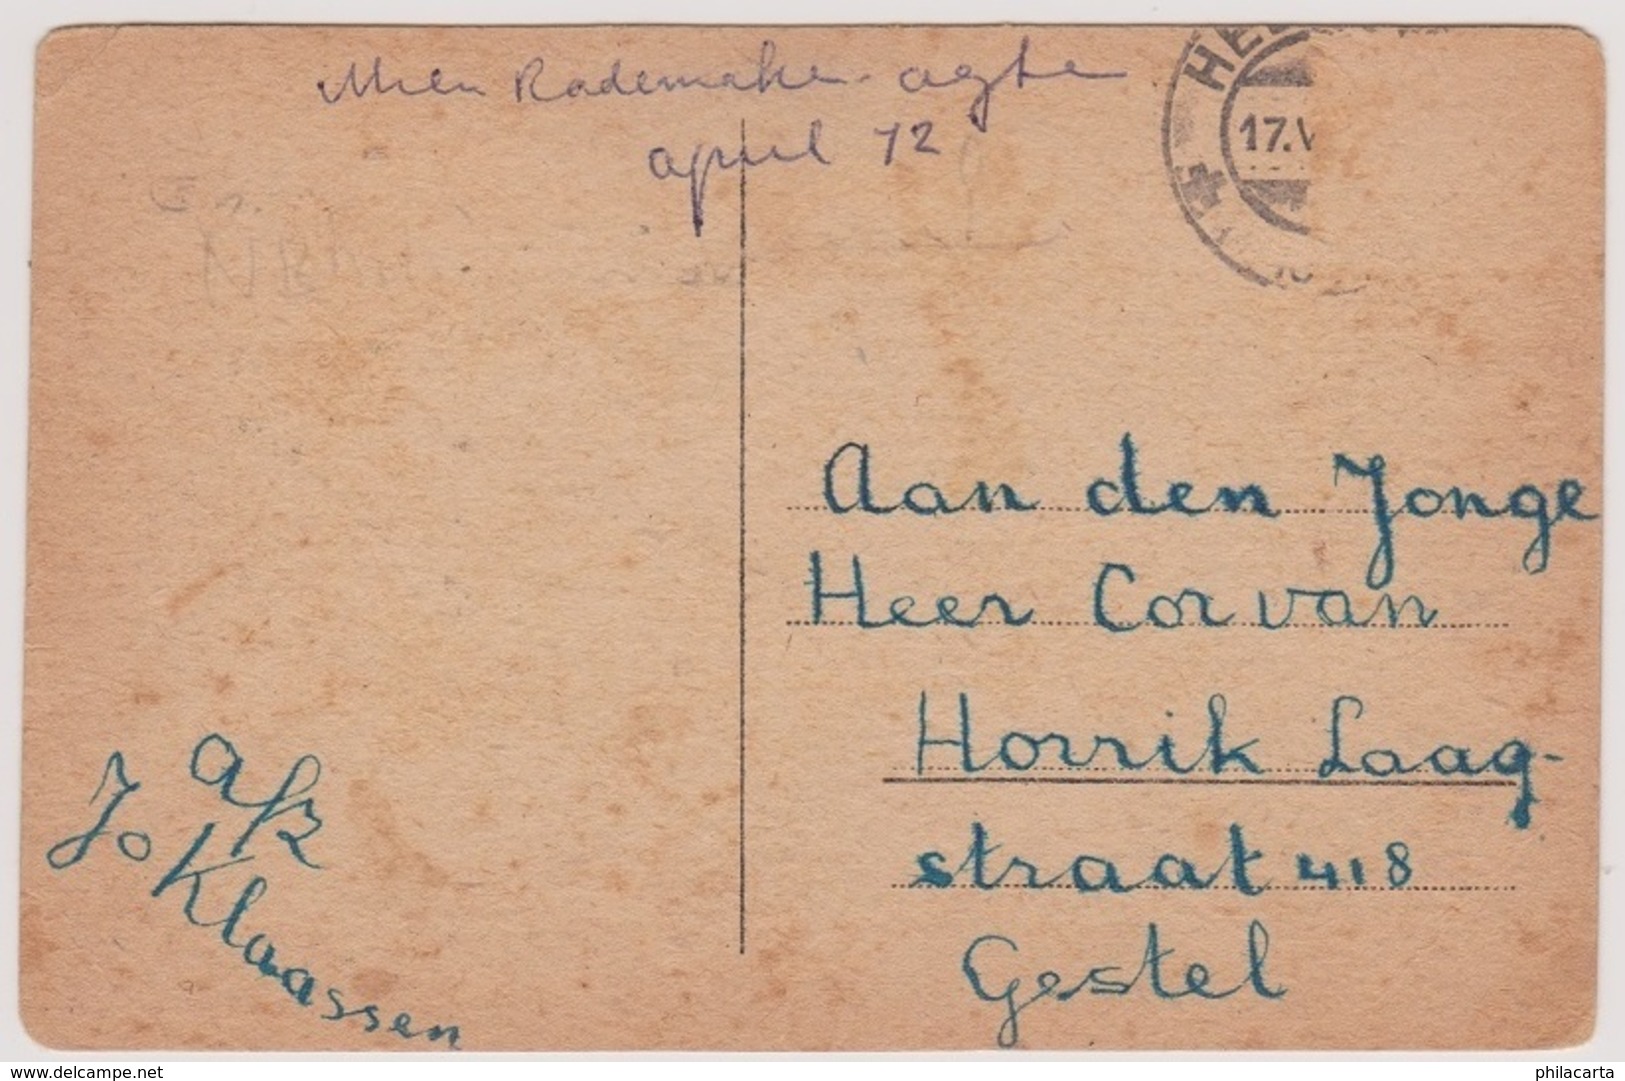 Mien Rademaker-agte
april 72
HEL
17.V
Aan den Jonge
Heer Cor van
Horrik Laag-
straat 418
Gestel
afz
Jo Klaassen
www.delcampe.net
philacarta